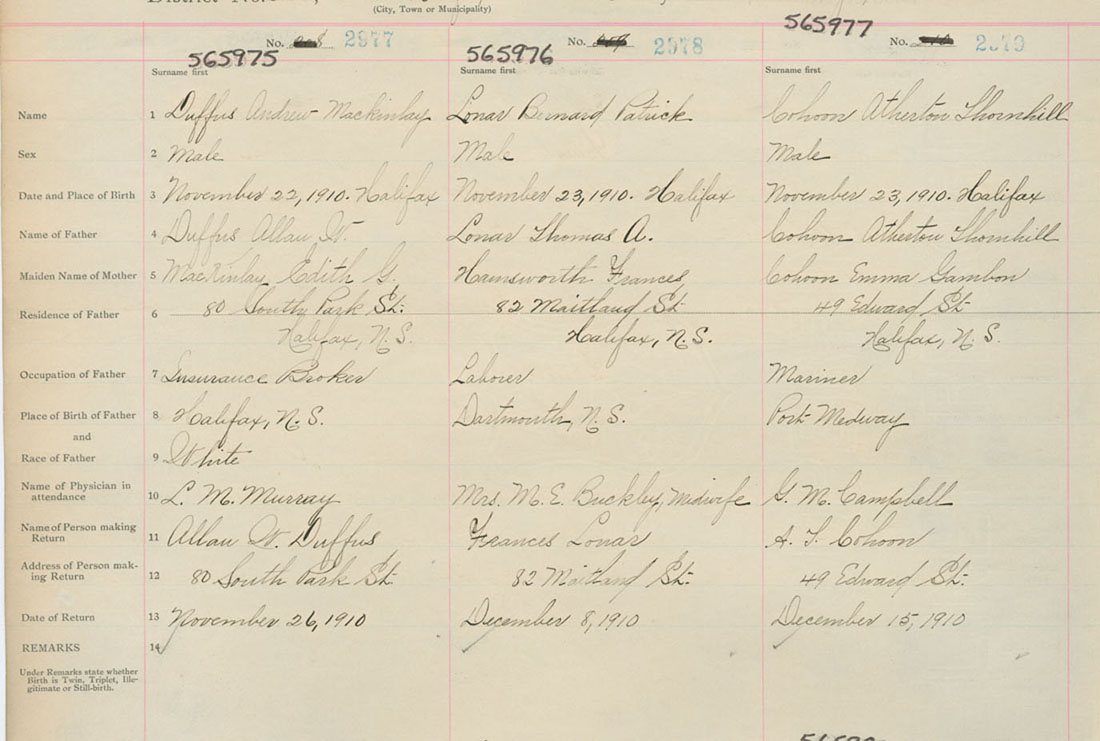 District No.
(City, Town or Municipality)
565975 No. 2977
565976 No. 2978
565977 No. 2979
Surname first Surname first Surname first
Name 1 Duffus Andrew Mackinlay Lonar Bernard Patrick Cohoon Atherton Thornhill
Sex 2 Male Male Male
Date and Place of Birth 3 November 22, 1910. Halifax November 23, 1910. Halifax November 23, 1910. Halifax
Name of Father 4 Duffus Allan W. Lonar Thomas A. Cohoon Atherton Thornhill
Maiden Name of Mother 5 MacKinlay Edith G. Hainsworth Frances Cohoon Emma Gambon
Residence of Father 6 80 South Park St. 82 Maitland St 49 Edward St
Halifax, N.S. Halifax, N.S. Halifax, N.S.
Occupation of Father 7 Insurance Broker Laborer Mariner
Place of Birth of Father 8 Halifax, N.S. Dartmouth, N.S. Port Medway
and
Race of Father 9 White
Name of Physician in
attendance 10 L. M. Murray Mrs. M. E. Buckley, Midwife G. M. Campbell
Name of Person making
Return 11 Allan W. Duffus Frances Lonar A. T. Cohoon
Address of Person mak-
ing Return 12 80 South Park St. 82 Maitland St. 49 Edward St.
Date of Return 13 November 26, 1910 December 8, 1910 December 15, 1910
REMARKS 14
Under Remarks state whether
Birth is Twin, Triplet, Ille-
gitimate or Still-birth.